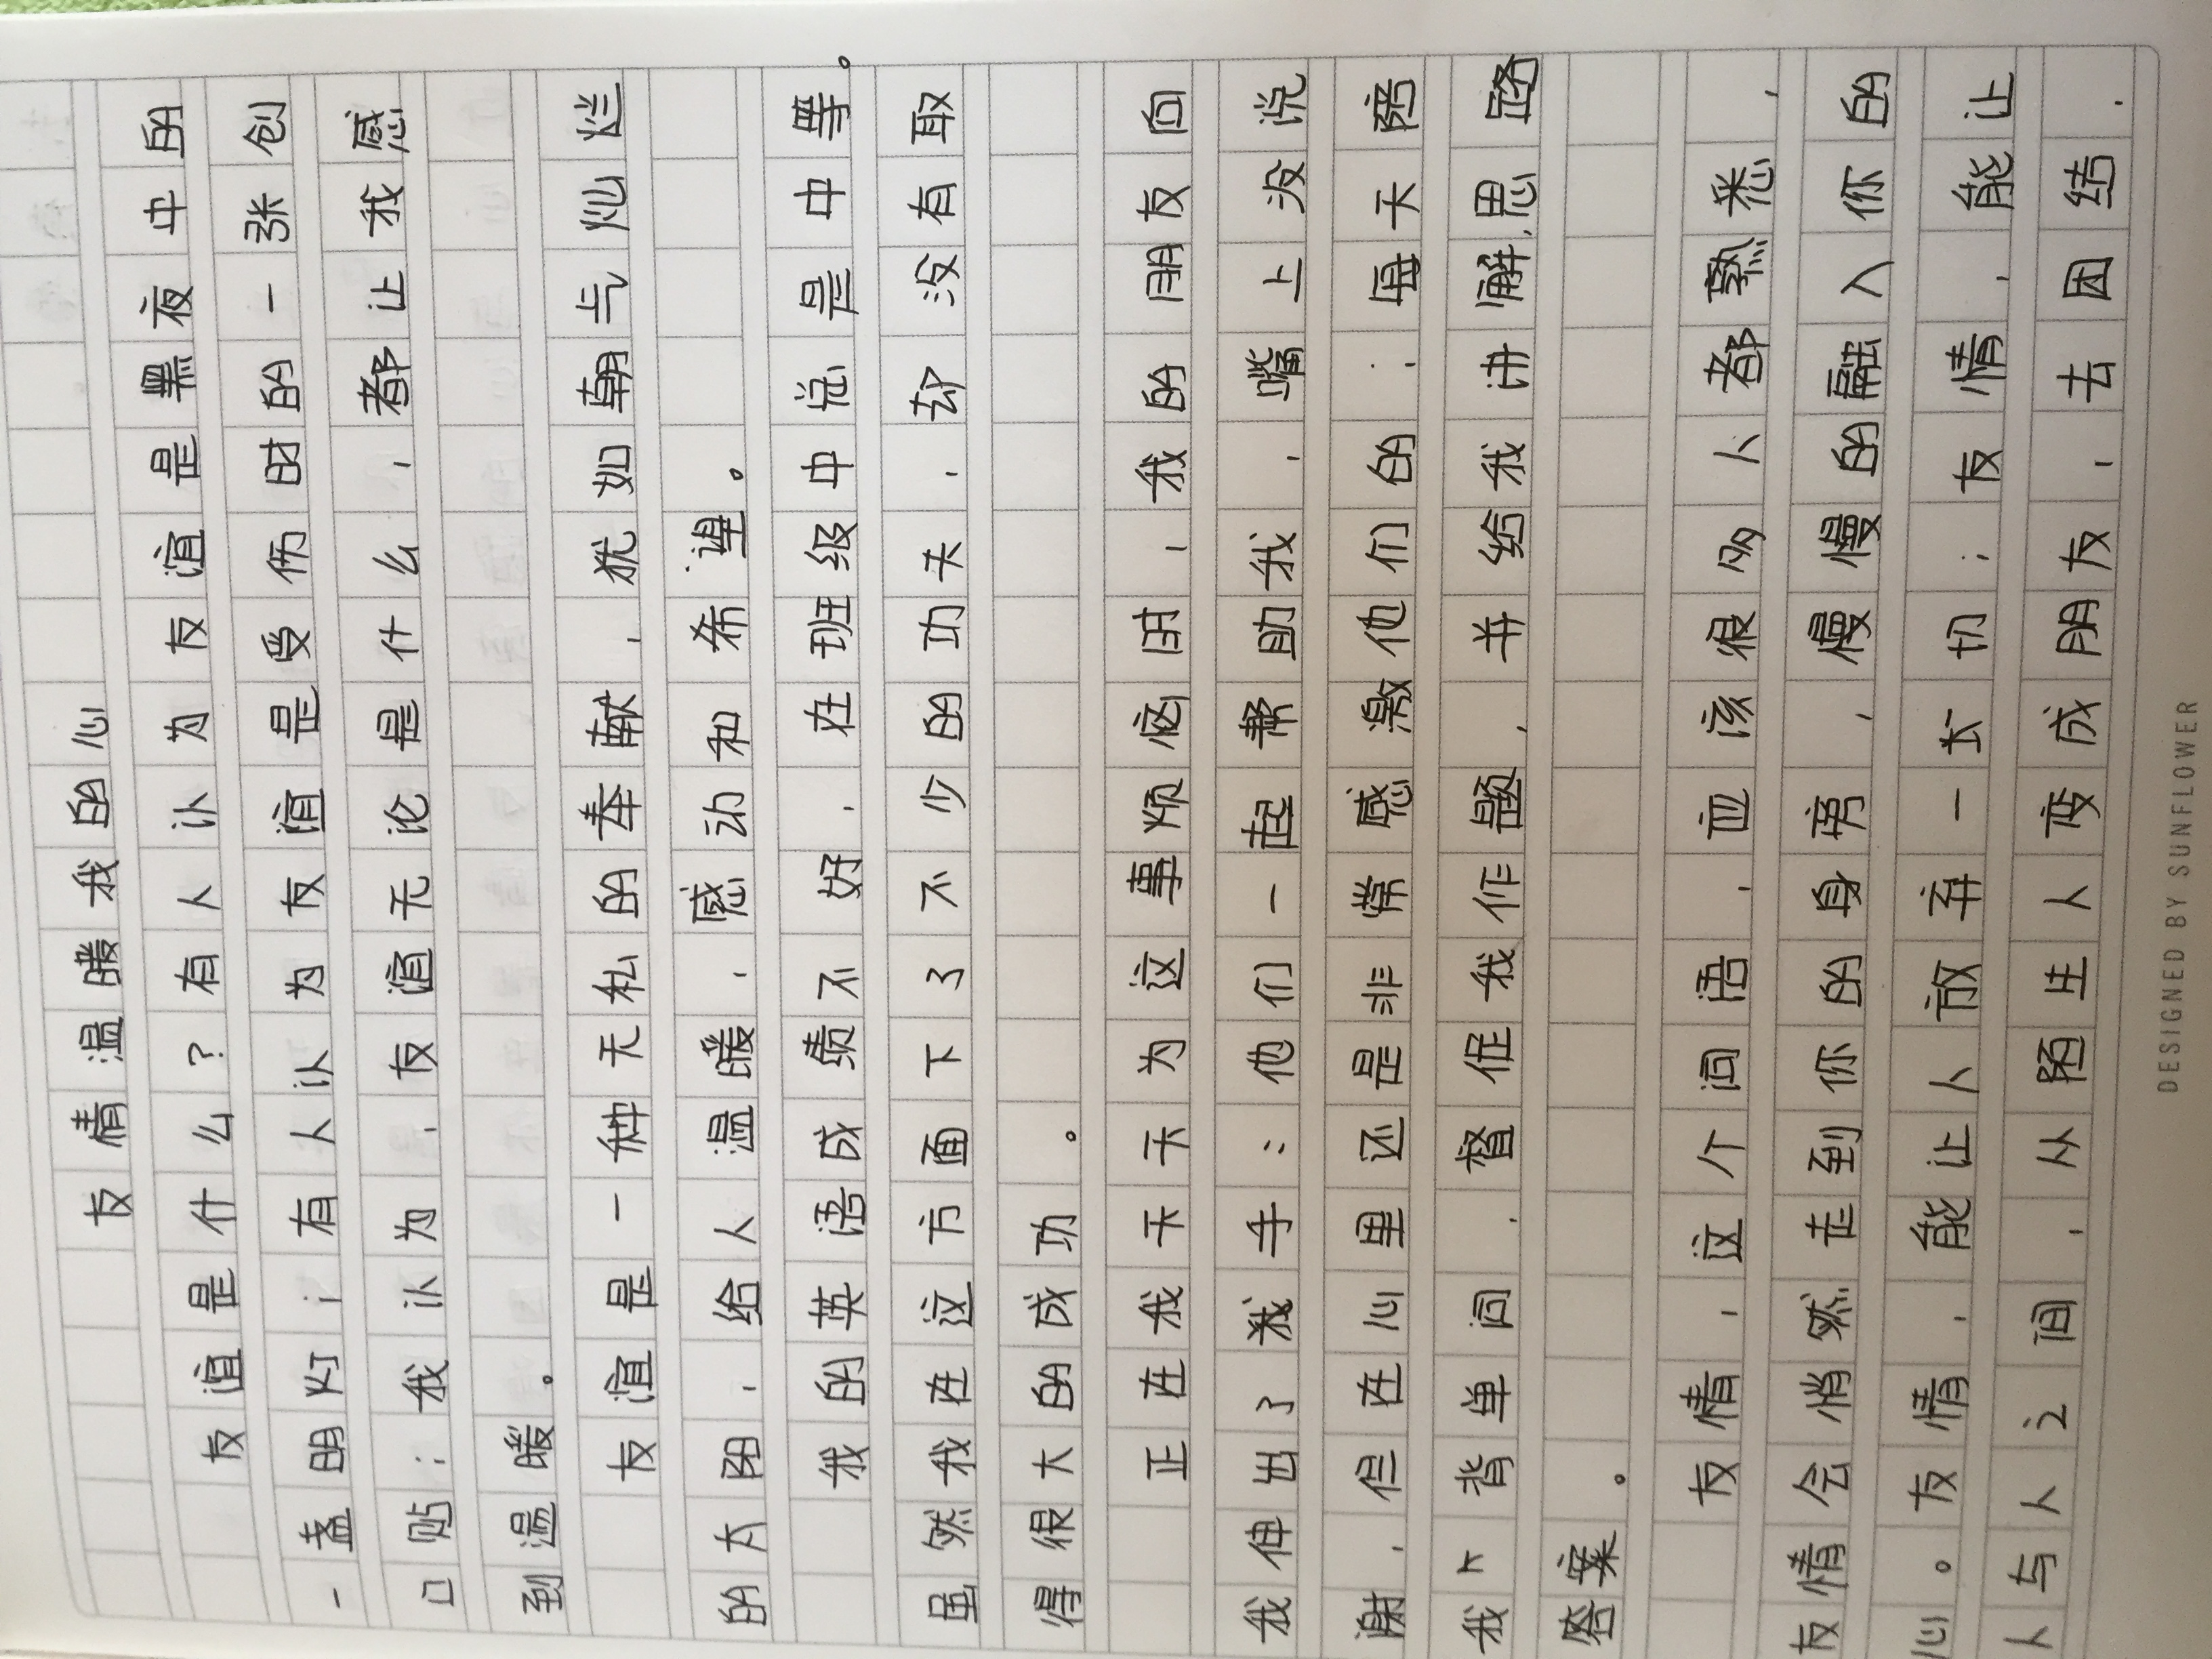 友情温暖我的心
友谊是什么?有人认为友谊是黑夜中的
一盏明灯;有人认为友谊是受伤时的一张创
口贴;我认为,友谊无论是什么,都让我感
到温暖。
友谊是一种无私的奉献,犹如朝与灿烂
的太阳,给人温暖,感动和希望。
我的英语成绩不好,在班级中总是中等。
虽然我在这方面下了不少的功夫,却没有取
得很大的成功。
正在我卡卡为这事烦恼时,我的朋友向
我伸出了手:他们一起帮助我,嘴上没说
谢,但在心里还是非常感激他们的.每天陪
我背单词.督促我作题,并给我讲解,思路
答案。
友情,这个词语,应该很多人都熟悉,
友情会悄然走到你的身旁,慢慢的融入你的
心。友情,能让人放弃一切;友情,能让
人与人之间,从陌生人变成朋友,去团结.
DESIGNED BY SUNFLOWER